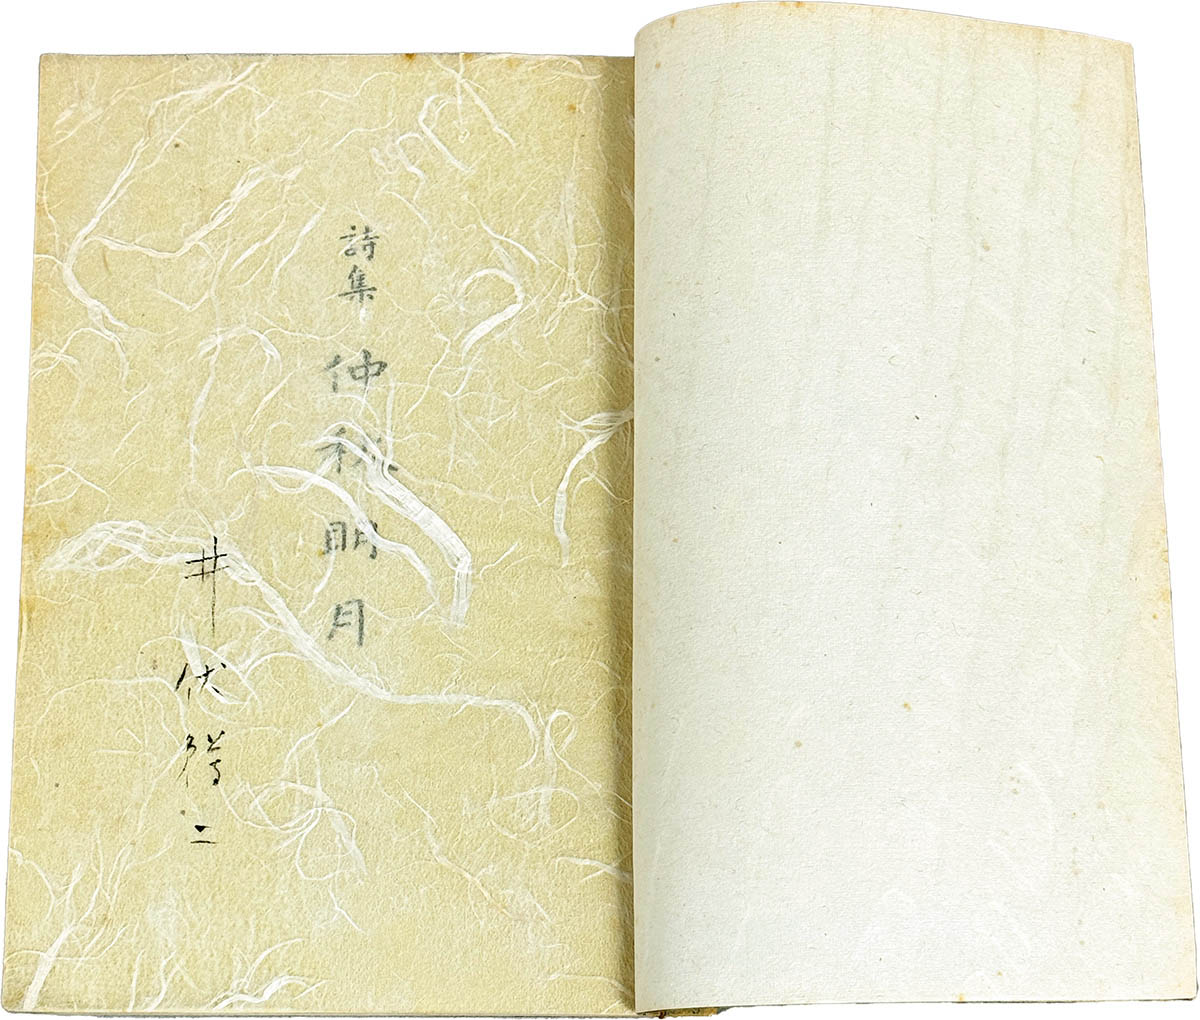 詩集 仲秋明月
井伏鱒二